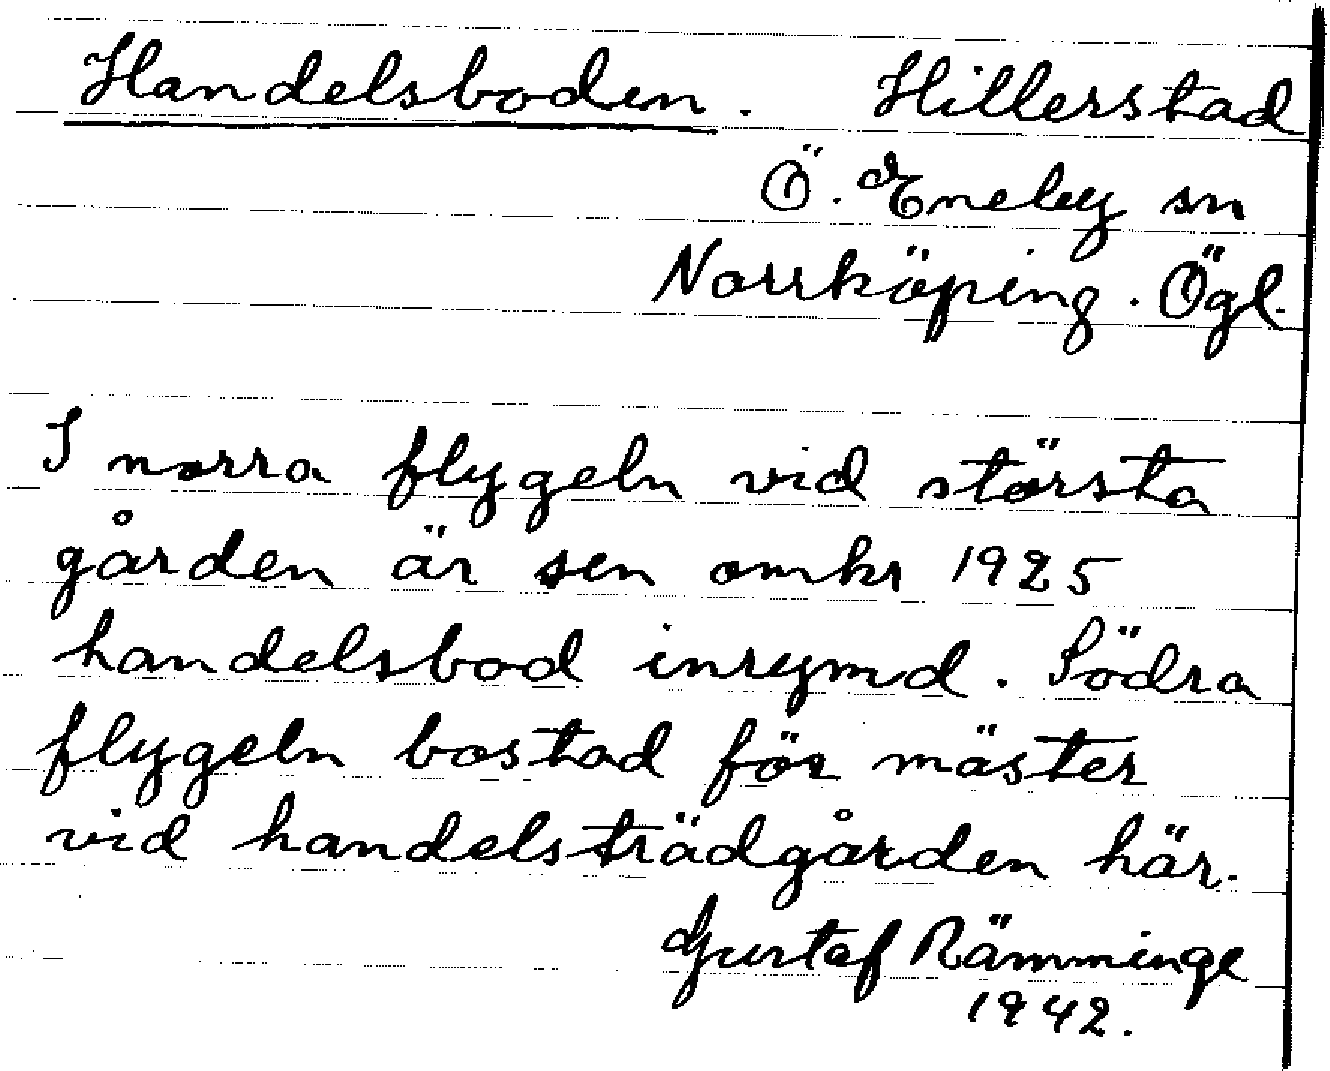 Handelsboden. Hillerstad
Ö. Eneby sn
Norrköping. Ögl.
I norra flygeln vid största
gården är sen omkr 1925
handelsbod inrymd. Södra
flygeln bostad för mäster
vid handelsträdgården här.
Gustaf Rämminge
1942.